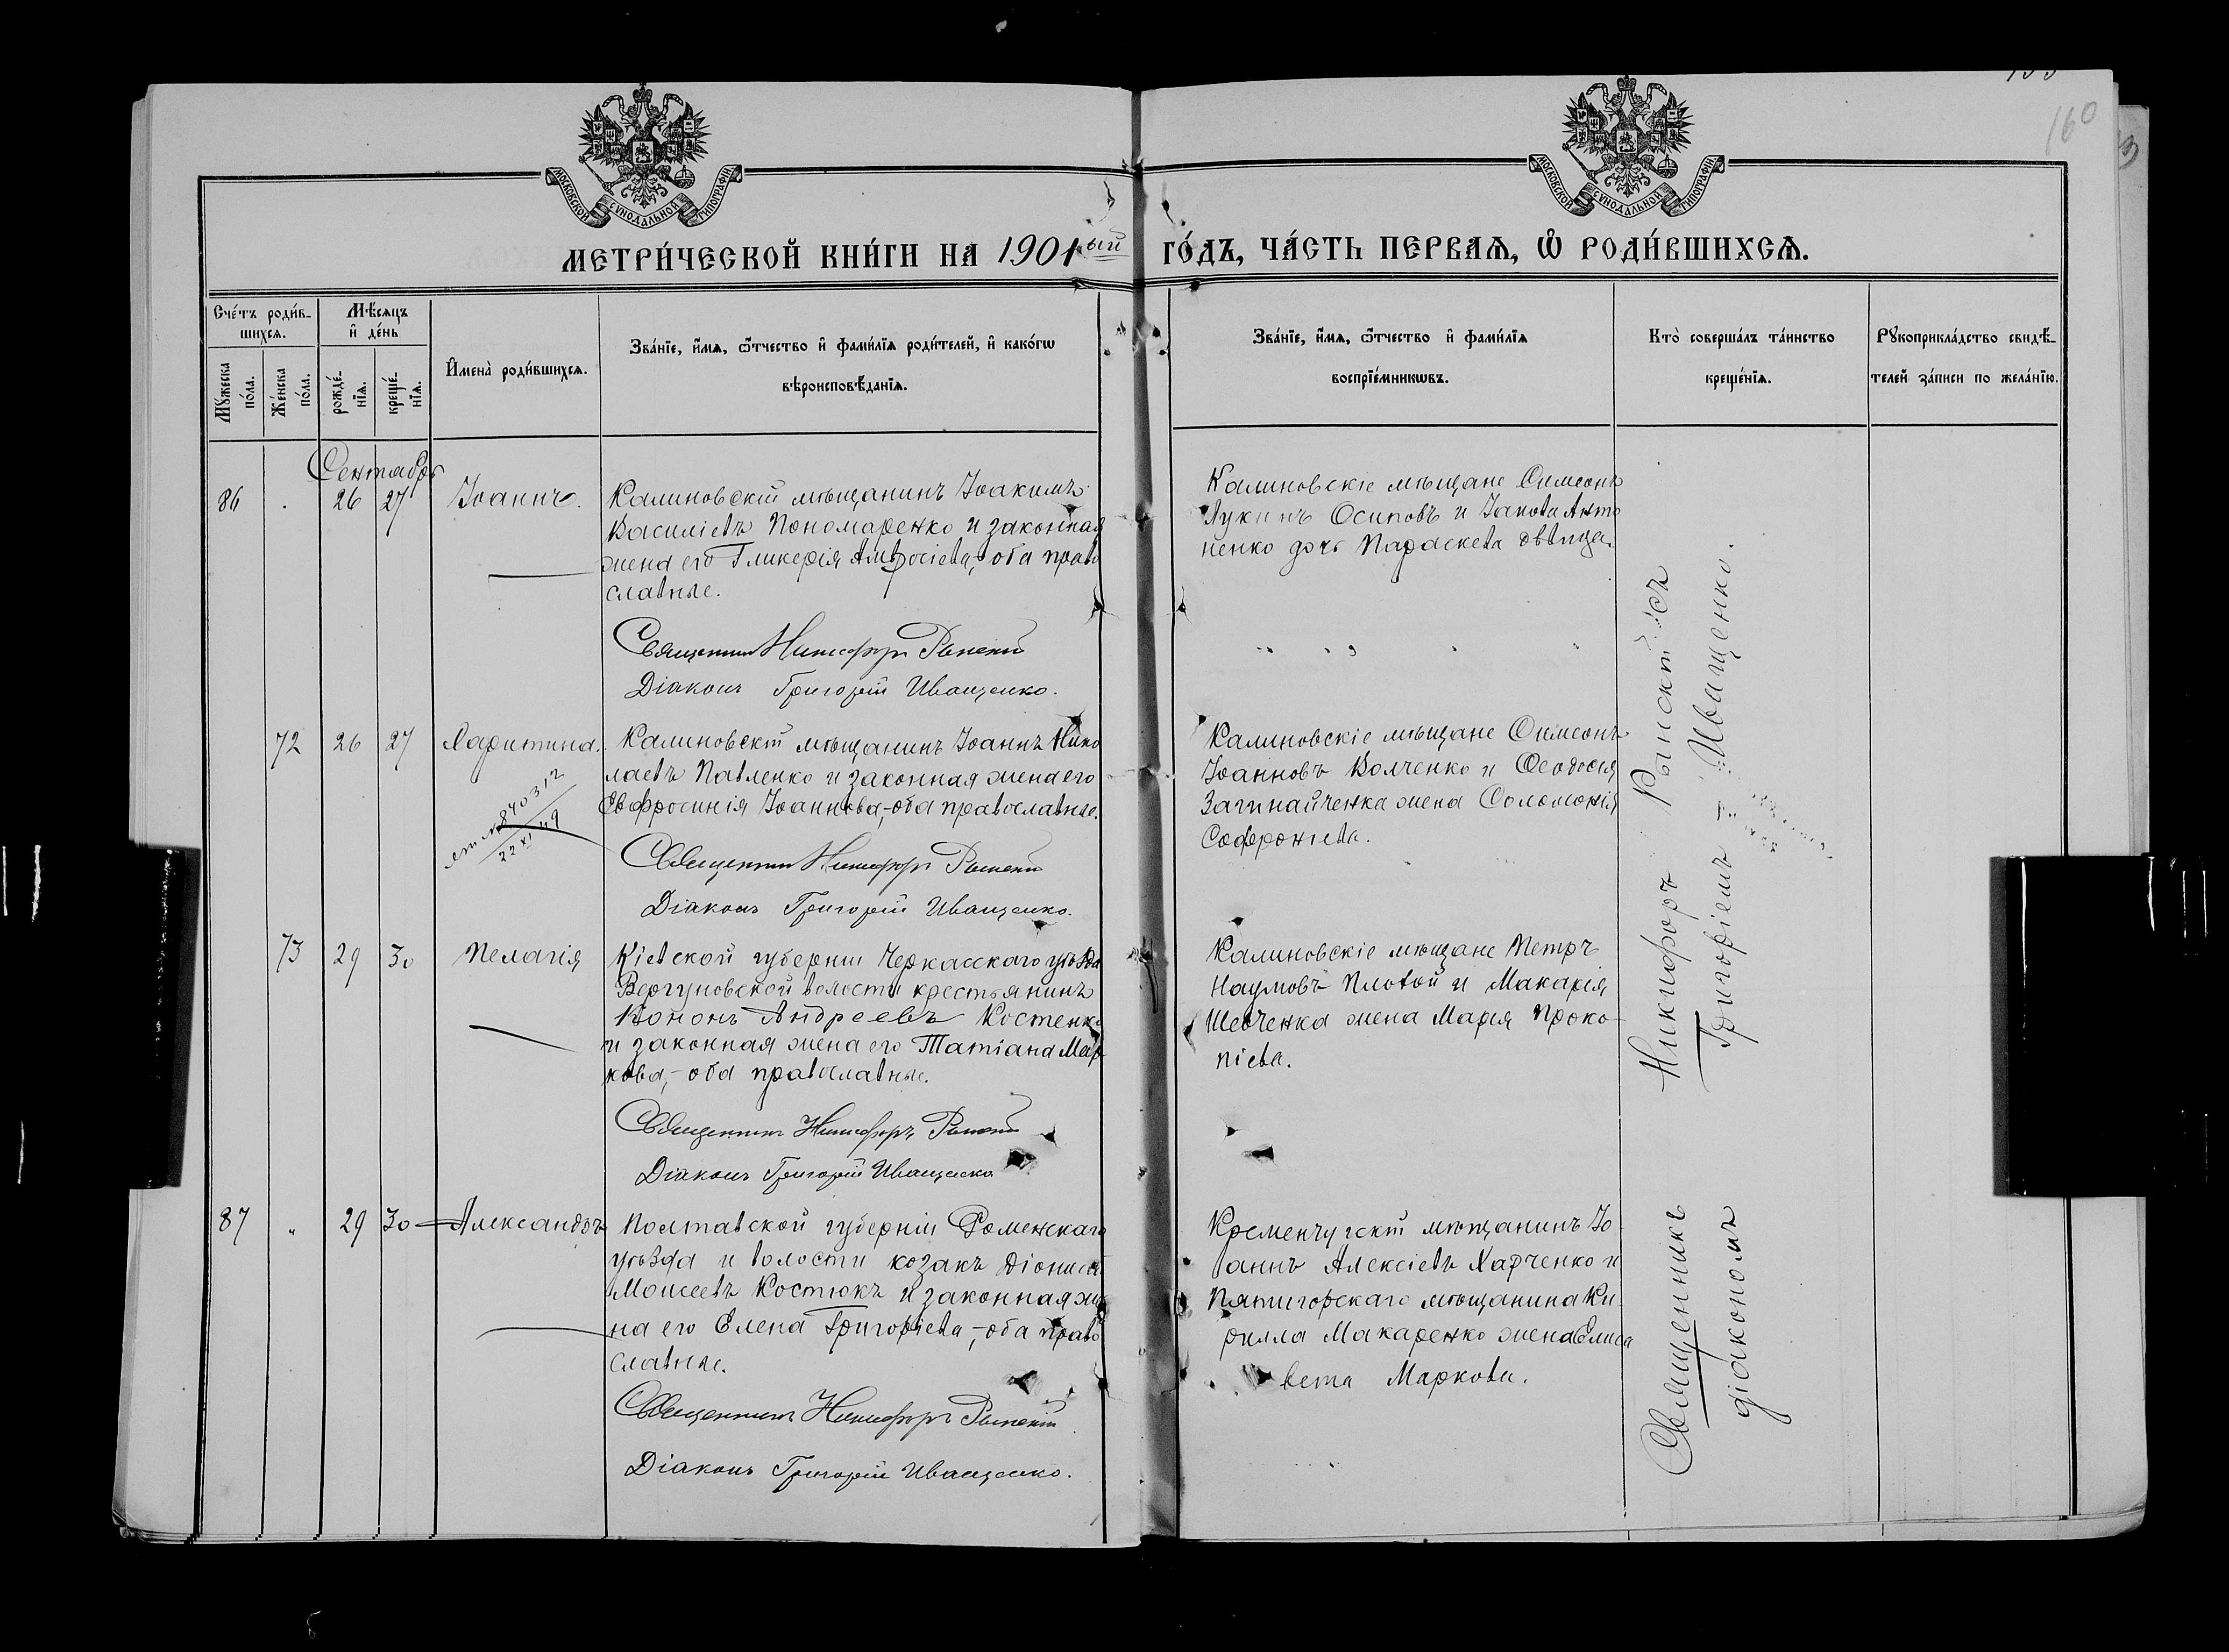 160
МОСКОВСКОЙ СѴНОДАЛЬНОЙ ТИПОГРАФІИ
МОСКОВСКОЙ СѴНОДАЛЬНОЙ ТИПОГРАФІИ
МЕТРИ́ЧЕСКОЙ КНИ́ГИ НА 1901ый ГО́ДЪ, ЧА́СТЬ ПЕРВАѦ, Ѡ҆ РОДИ́ВШИХСѦ.
Сче́тъ роди́в-
шихсѧ.
Мꙋ́жеска
по́ла.
Же́нска
по́ла.
Мѣ́сѧцъ
и҆ де́нь
рожде́-
нїѧ.
креще́-
нїѧ.
И҆мена̀ роди́вшихсѧ.
Зва́нїе, и҆́мѧ, ѻ҆́тчество и҆ фами́лїѧ роди́телей, и҆ како́гѡ
вѣроисповѣ́данїѧ.
Зва́нїе, и҆́мѧ, ѻ҆́тчество и҆ фами́лїѧ
воспрїе́мникѡвъ.
Кто̀ соверша́лъ та́инство
креще́нїѧ.
Рꙋкоприкла́дство свидѣ́-
телей за́писи по жела́нїю.
Сентябрь
86 26 27 Іоаннъ.
Калиновскій мѣщанинъ Іоакимъ
Василіевъ Пономаренко и законная
жена его Гликерія Амвросіева,- оба право
славные.
Священникъ Никифоръ Рыпскій
Діаконъ Григорій Иващенко.
Калиновскіе мѣщане Симеонъ
Лукинъ Осиповъ и Іакова Анто
ненко дочь Параскева дѣвица.
72 26 27 Харитина.
840312
22 XI 49
Калиновскій мѣщанинъ Іоаннъ Нико
лаевъ Павленко и законная жена его
Евфросинія Іоаннова,- оба православные.
Священникъ Никифоръ Рыпскій
Діаконъ Григорій Иващенко.
Калиновскіе мѣщане Симеонъ
Іоанновъ Волченко и Ѳеодосія
Загинайченка жена Соломонія
Софроніева.
73 29 30 Пелагія
Кіевской губерніи Черкасскаго уѣзда
Вергуновской волости крестьянинъ
Кононъ Андреевъ Костенко
и законная жена его Татіана Мар
кова,- оба православные.
Священникъ Никифоръ Рыпскій
Діаконъ Григорій Иващенко
Калиновскіе мѣщане Петръ
Наумовъ Плотой и Макарія
Шевченка жена Марія Проко-
піева.
87 " 29 30 Александръ
Полтавской губерніи Роменскаго
уѣзда и волости козакъ Діонисій
Моисеевъ Костюкъ и законная же
на его Елена Григоріева,- оба право
славные.
Священникъ Никифоръ Рыпскій
Діаконъ Григорій Иващенко.
Кременчугскій мѣщанинъ Іо-
аннъ Алексіевъ Харченко и
Пятигорскаго мѣщанина Ки-
рилла Макаренко жена Елиса
вета Маркова.
Священникъ Никифоръ Рыпскій съ
діакономъ Григоріемъ Иващенко.